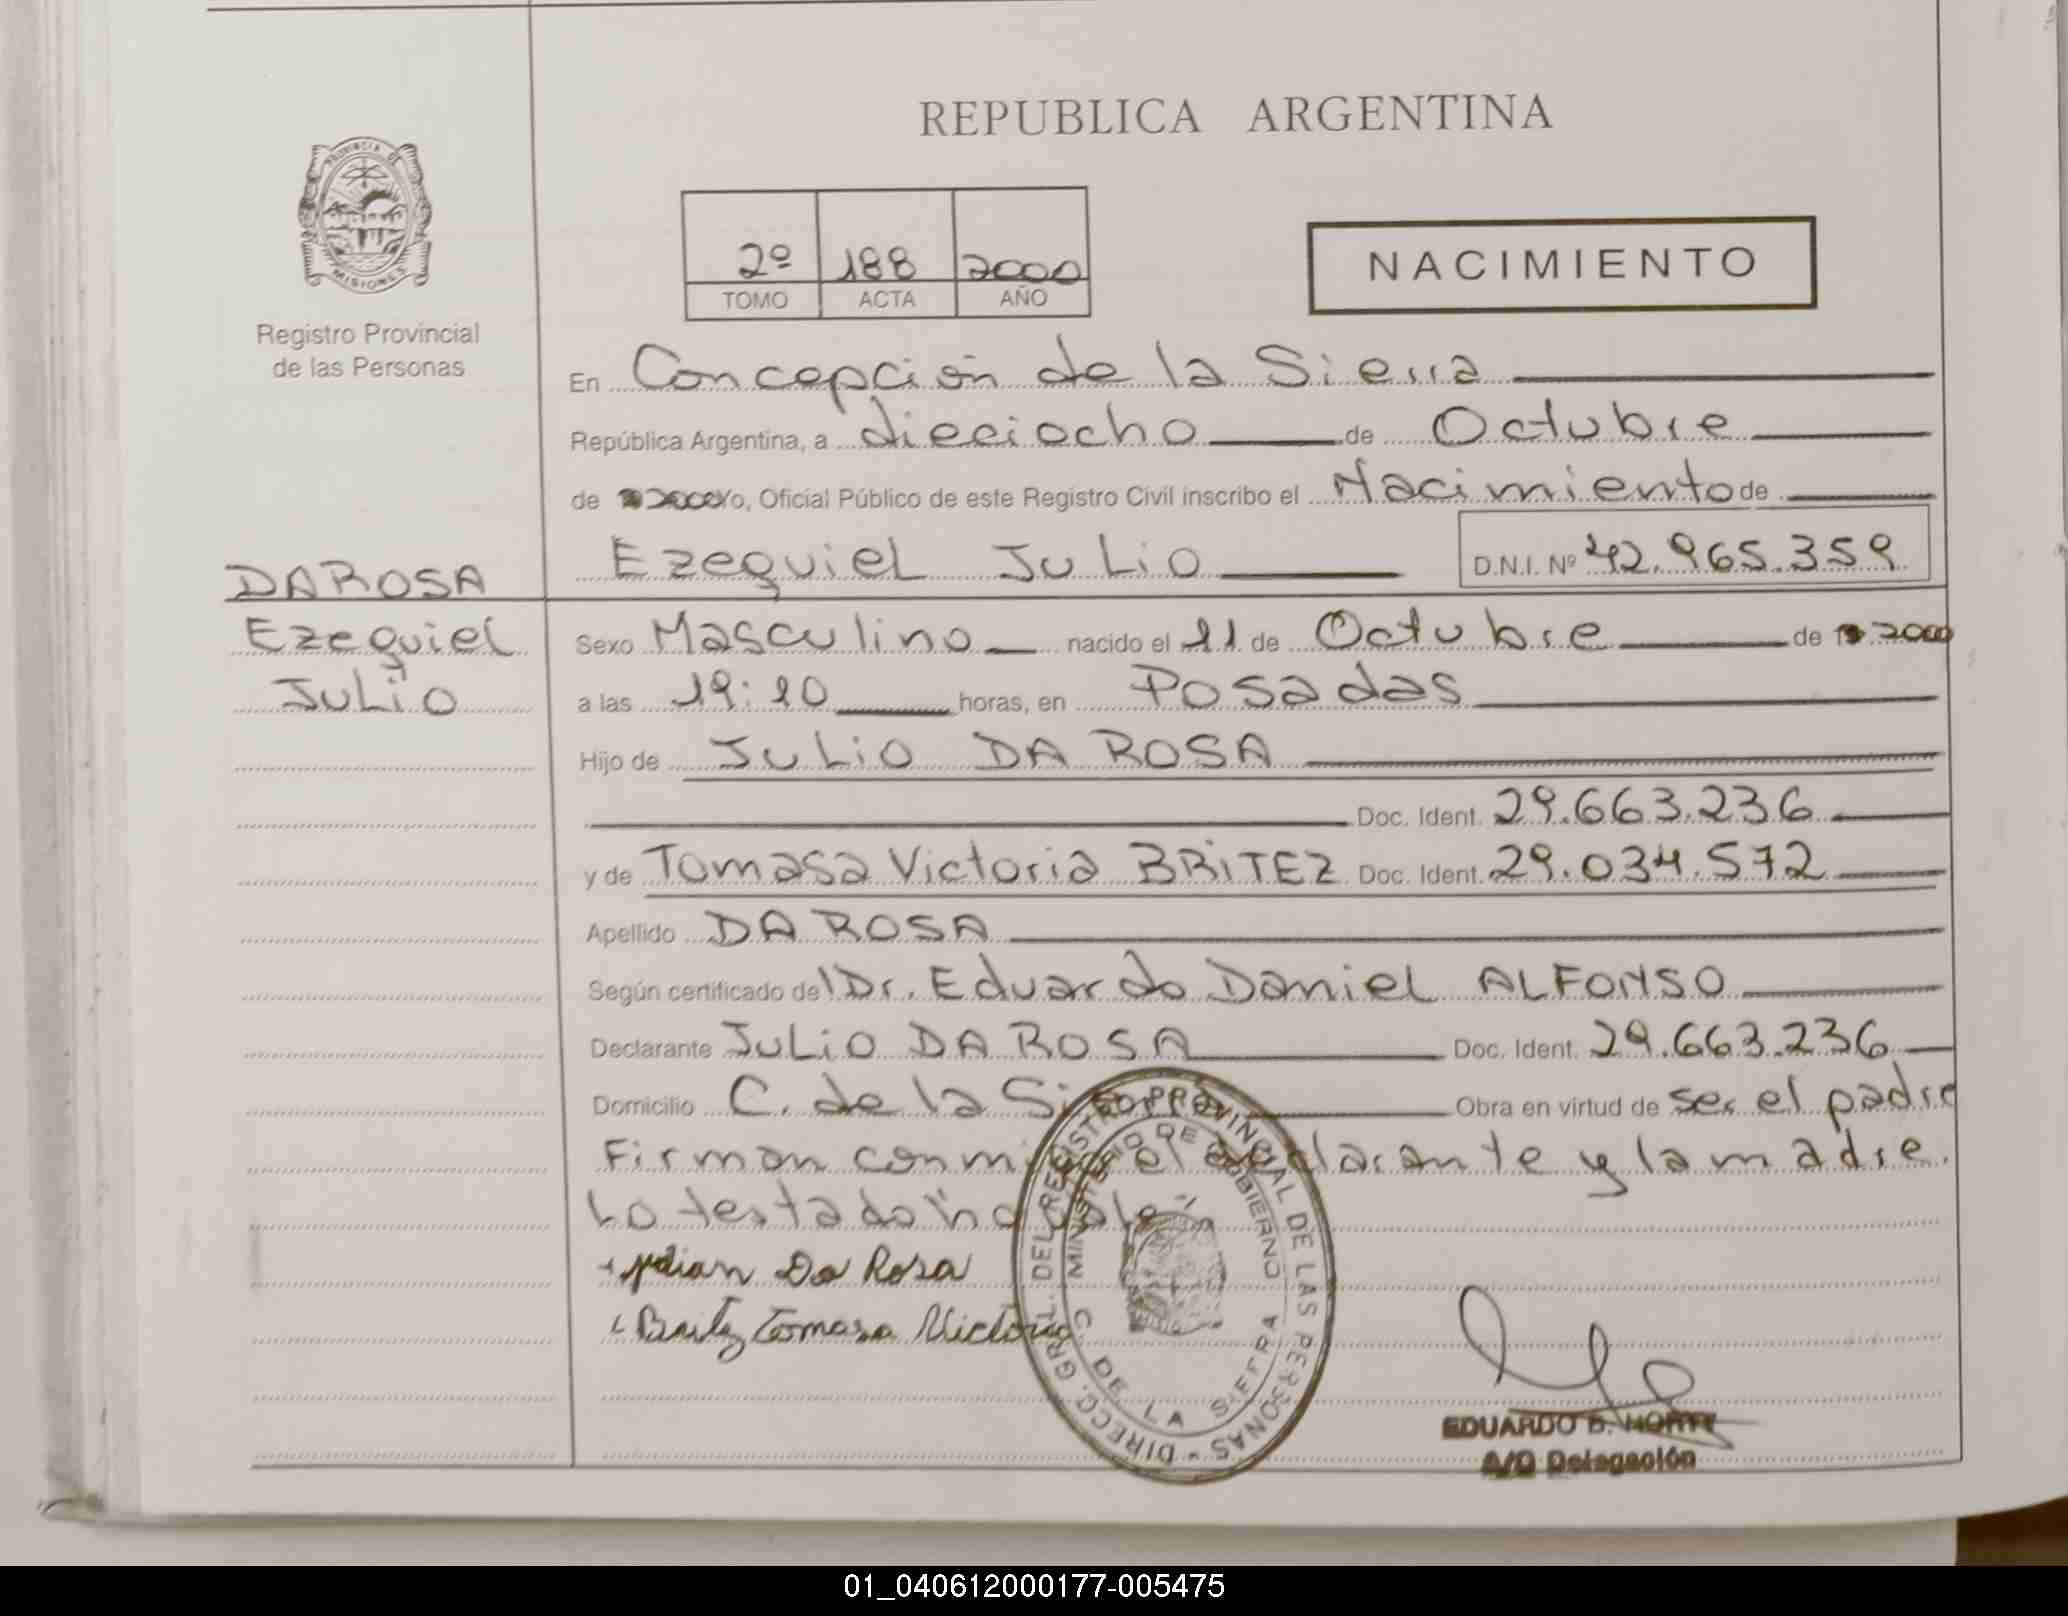 REPUBLICA ARGENTINA
PROVINCIA DE MISIONES
Registro Provincial
de las Personas
2º 188 2000
TOMO ACTA AÑO
NACIMIENTO
En Concepción de la Sierra
República Argentina, a dieciocho de Octubre
de 2000 yo, Oficial Público de este Registro Civil inscribo el Nacimiento de
Ezequiel Julio D.N.I. Nº 42.965.359
DA ROSA
Ezequiel
Julio
Sexo Masculino nacido el 11 de Octubre de 2000
a las 19:10 horas, en Posadas
Hijo de Julio DA ROSA
Doc. Ident. 29.663.236
y de Tomasa Victoria BRITEZ Doc. Ident. 29.034.572
Apellido DA ROSA
Según certificado del Dr. Eduardo Daniel ALFONSO
Declarante Julio DA ROSA Doc. Ident. 29.663.236
Domicilio C. de la Si Obra en virtud de ser el padre
Firman conmigo el declarante y la madre.
Lo testado "no vale"
Da Rosa
Tomasa Victoria
DIRECC. GRAL. DEL REGISTRO PROVINCIAL DE LAS PERSONAS -
MINISTERIO DE GOBIERNO
C. DE LA SIERRA
EDUARDO D.
A/C Delegación
01_040612000177-005475